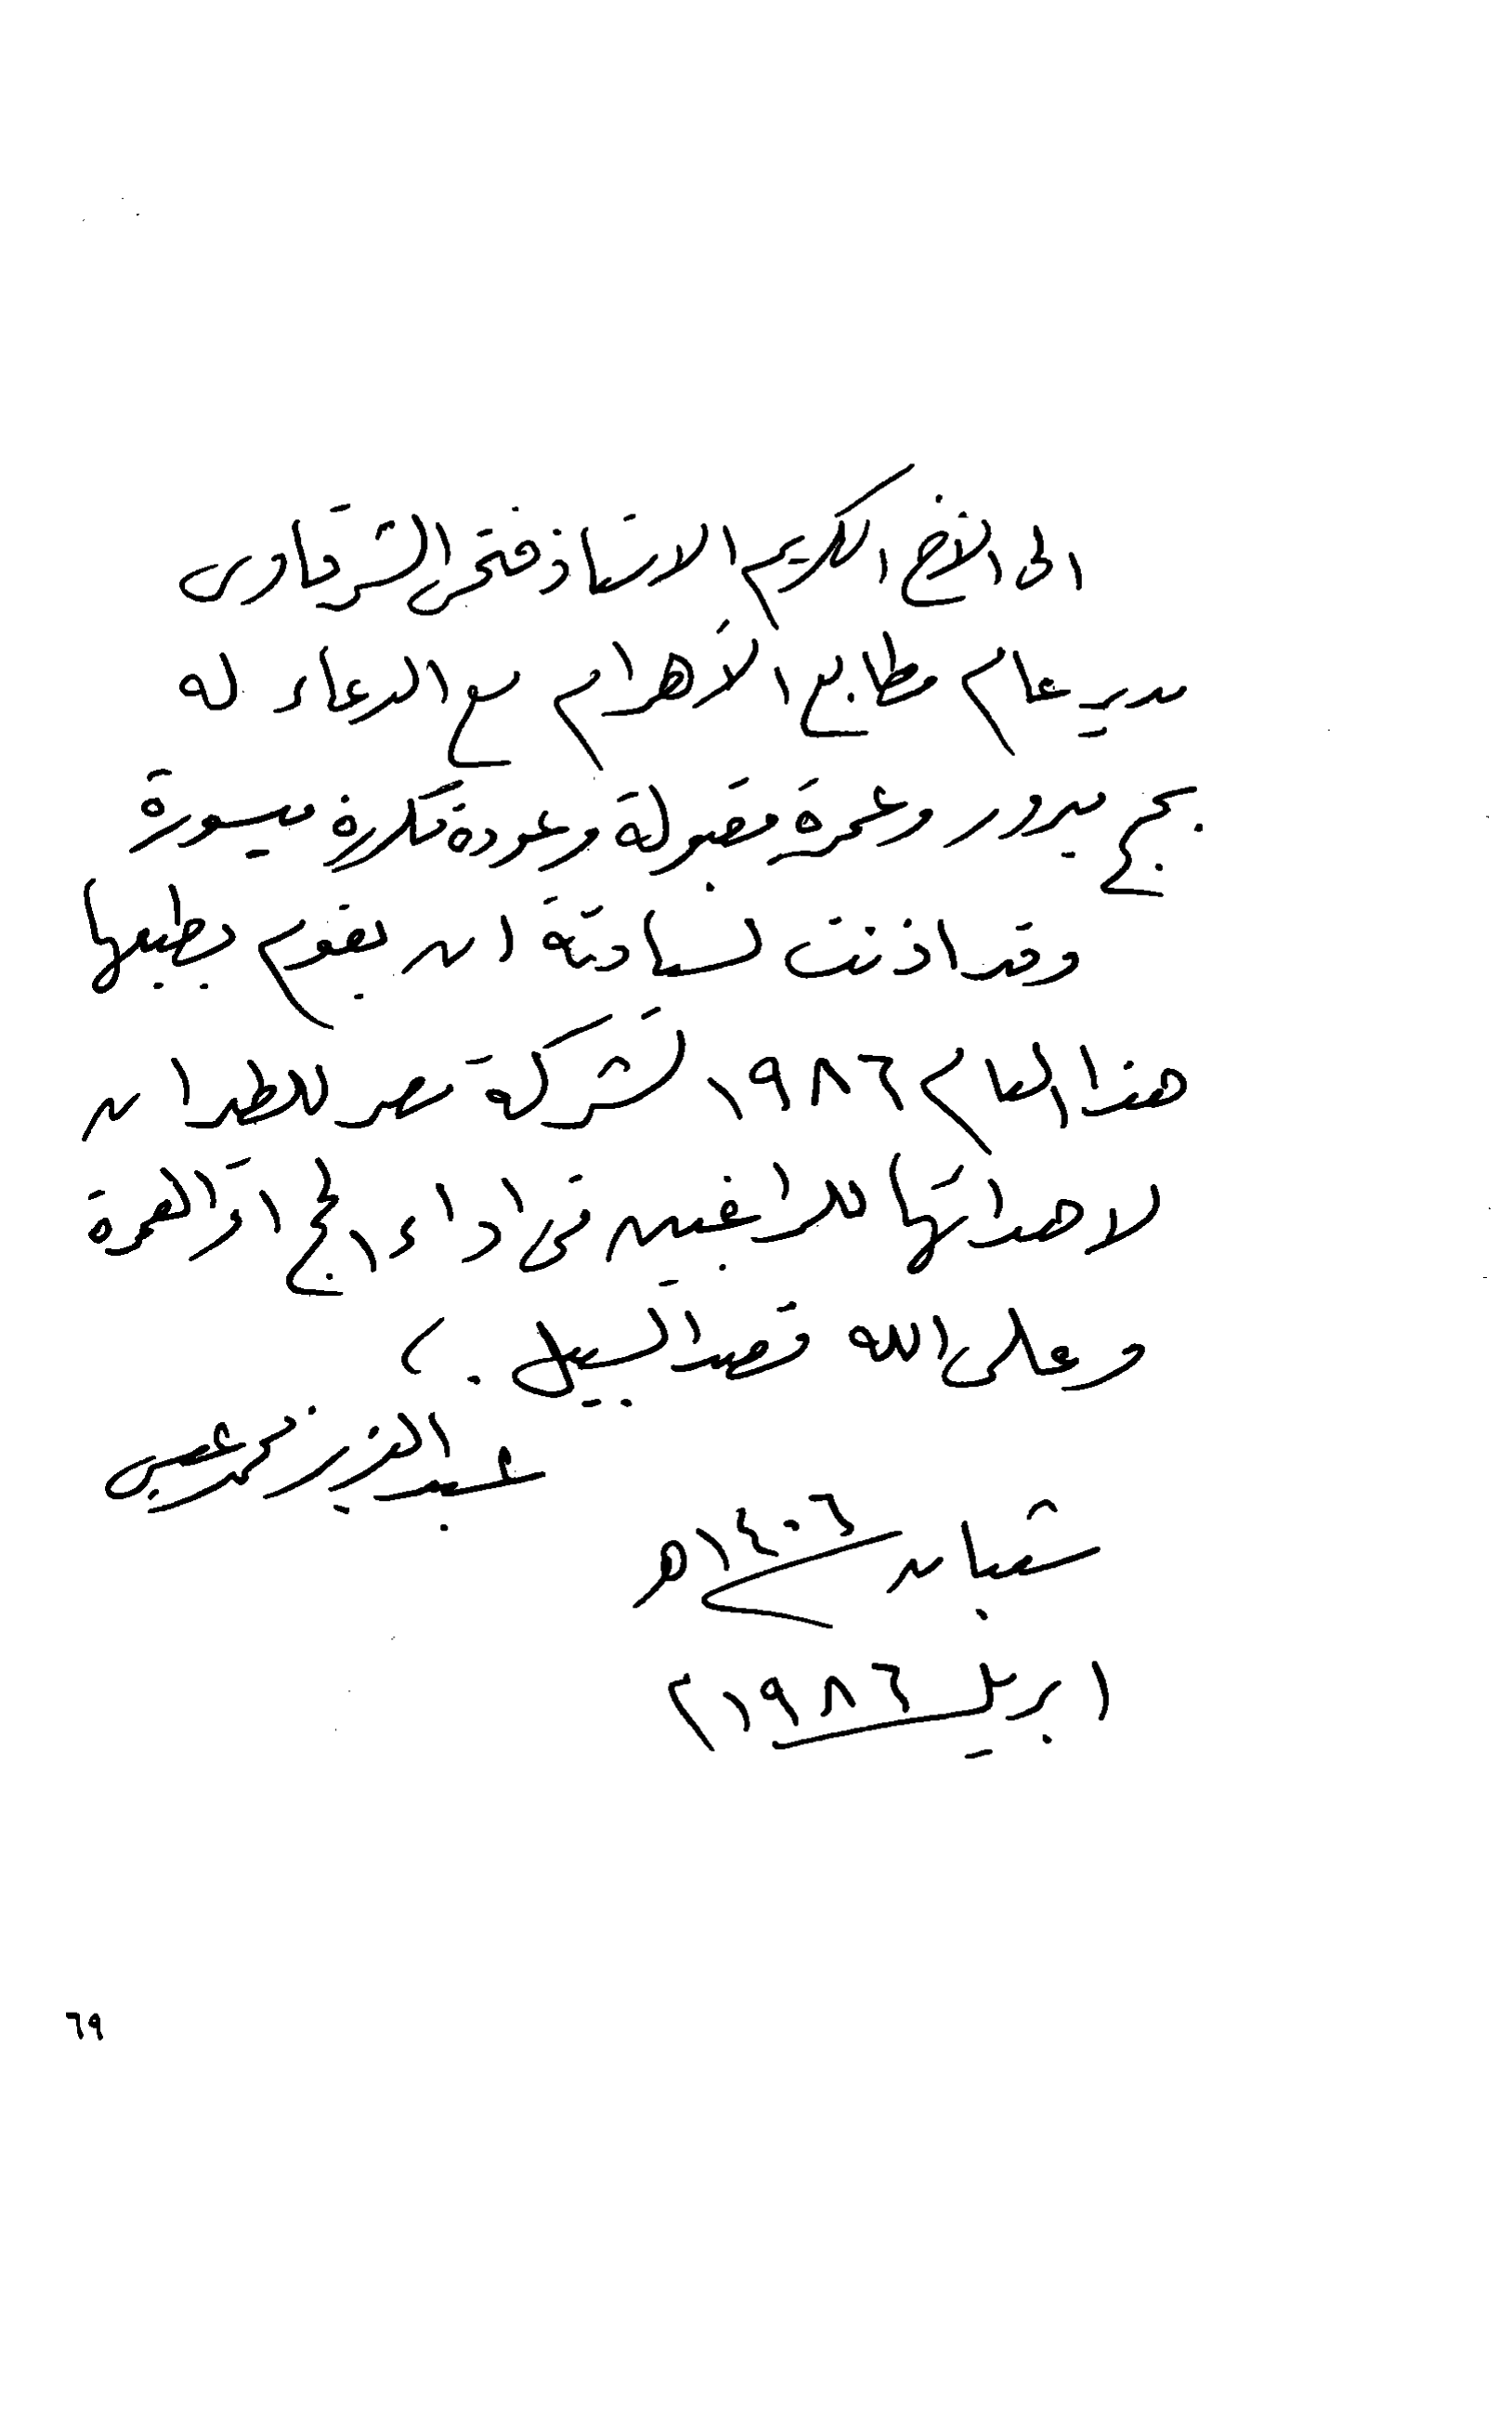 الى الأخ الكريم الاستاذ فتحى الشرقاوى
مدير عام مطابع الأهرام مع الدعاء له
بحج مبرور وعمرة مقبولة وعودة مكررة ميسورة
وقد اذنت لسيادته ان يقوم بطبعها
هذا العام ١٩٨٦ لشركة مصر للطيران
لاهدائها للراغبين فى اداء الحج او العمرة
وعلى الله قصد السبيل .،
عبد العزيز محمد عيسى
شعبان ١٤٠٦ هـ
ابريل ١٩٨٦ م
٦٩